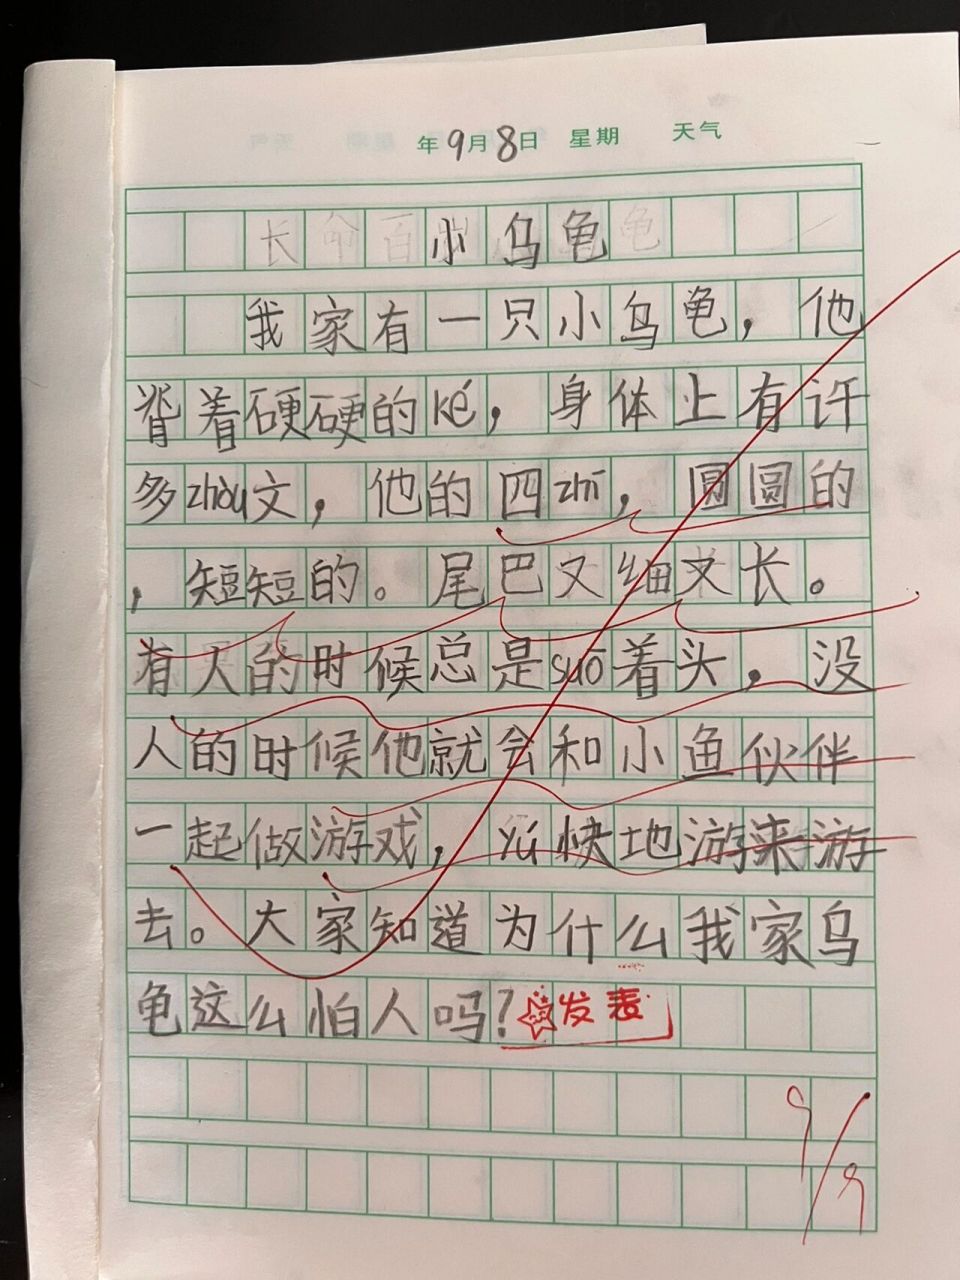 年9月8日 星期 天气
小乌龟
我家有一只小乌龟，他
背着硬硬的ké，身体上有许
多zhòu文，他的四zhī，圆圆的
，短短的。尾巴又细又长。
有人的时候总是suō着头，没
人的时候他就会和小鱼伙伴
一起做游戏，yú快地游来游
去。大家知道为什么我家乌
龟这么怕人吗？发表
9/9